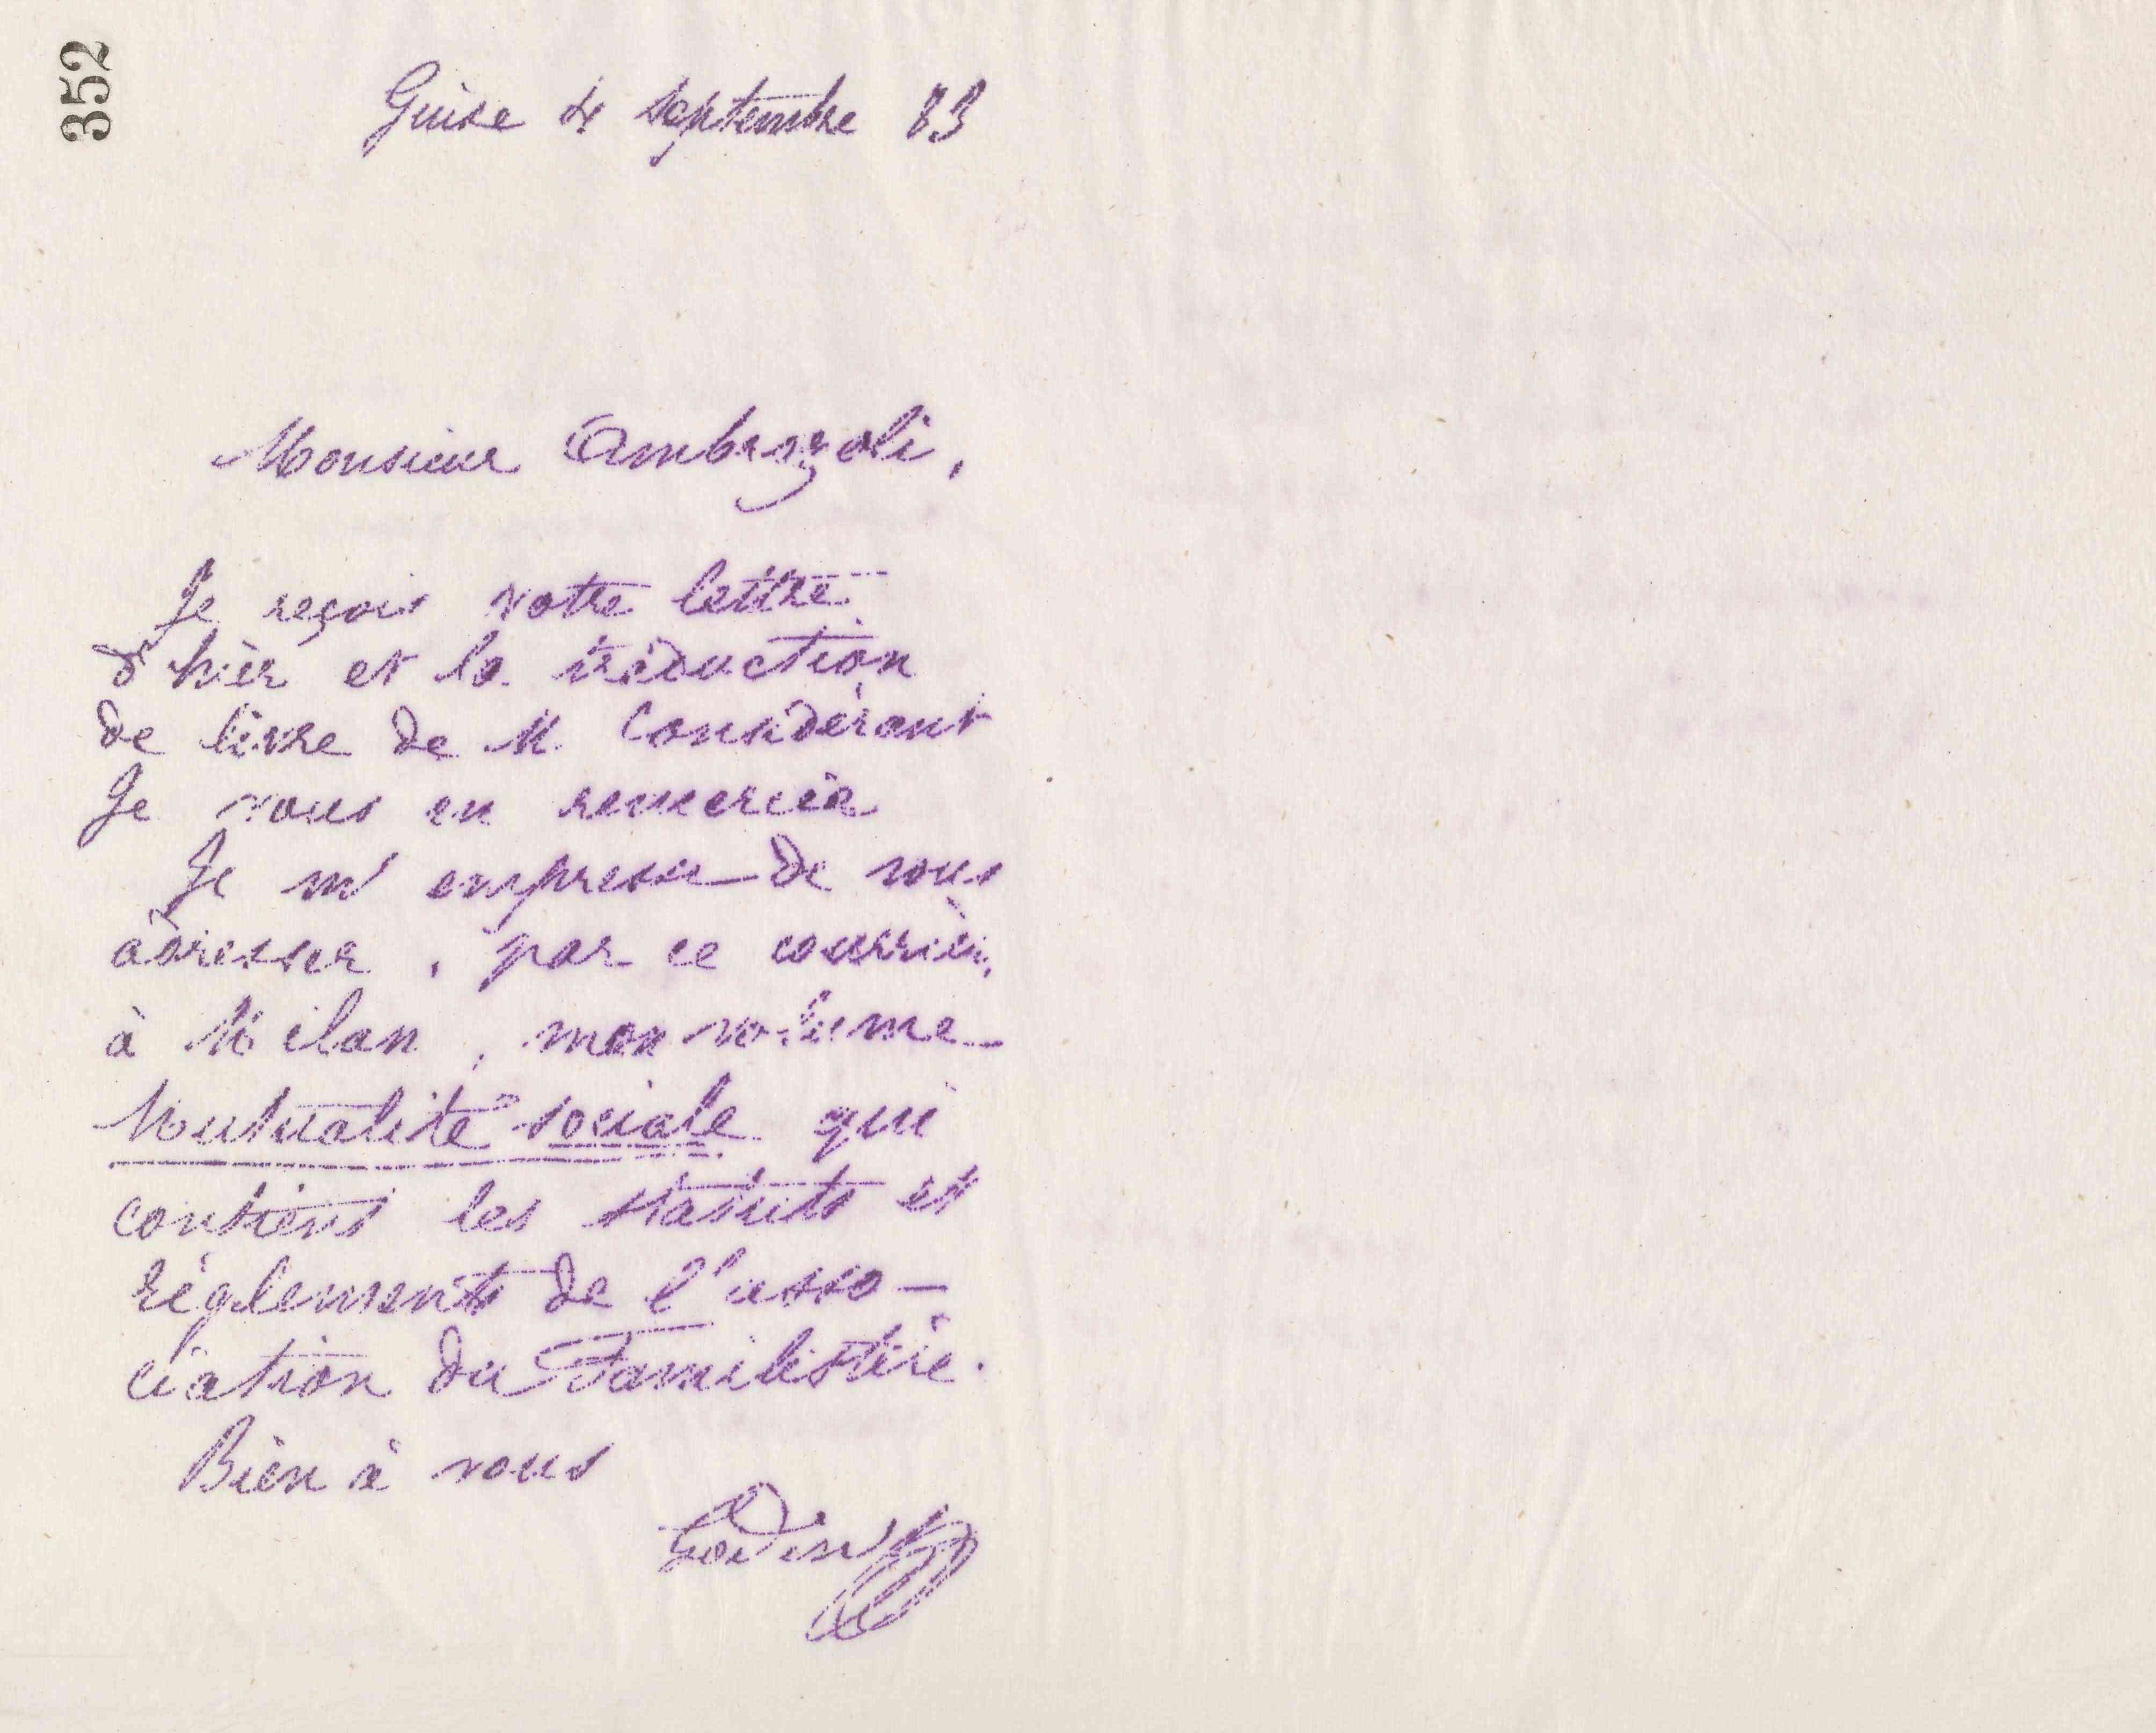 352
Guise 4 septembre 83
Monsieur Ambrozoli,
Je reçois votre lettre
d'hier et la traduction
de livre de M. Considérant
Je vous en remercie
Je m'empresse de vous
adresser, par ce courrier,
à Milan, mon volume
Mutualité sociale qui
contient les statuts et
règlements de l'asso-
ciation du Familistère.
Bien à vous
Godin